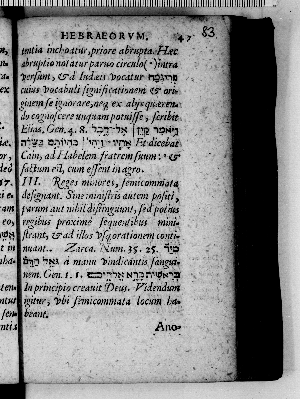 HEBRAEORVM. 47 83
tentia inchoatur, priore abrupta. Hæc
abruptio notatur paruo circulo (°) intra
versum, & à Iudæis vocatur פרוגמה
cuius vocabuli significationem & ori-
ginem se ignorare, neq; ex alijs queren-
do cognoscere unquam potuisse, scribit
Elias, Gen. 4. 8. ויאמר קין אל־הבל
אחיו ויהי בהיותם בשדה Et dicebat
Cain, ad Habelem fratrem suum: &
factum est, cum essent in agro.
III. Reges minores, semicommata
designant. Sine ministris autem positi,
parum aut nihil distinguunt, sed potius
regibus proximè sequentibus mini-
strant, & ad illos usq; orationem conti-
nuant. Zacca. Num. 35. 25. מיד
גאל הדם à manu vindicantis sangui-
nem. Gen. 1. 1. בראשית ברא אלהים
In principio creauit Deus. Videndum
igitur, ubi semicommata locum ha-
beant.
Ano-